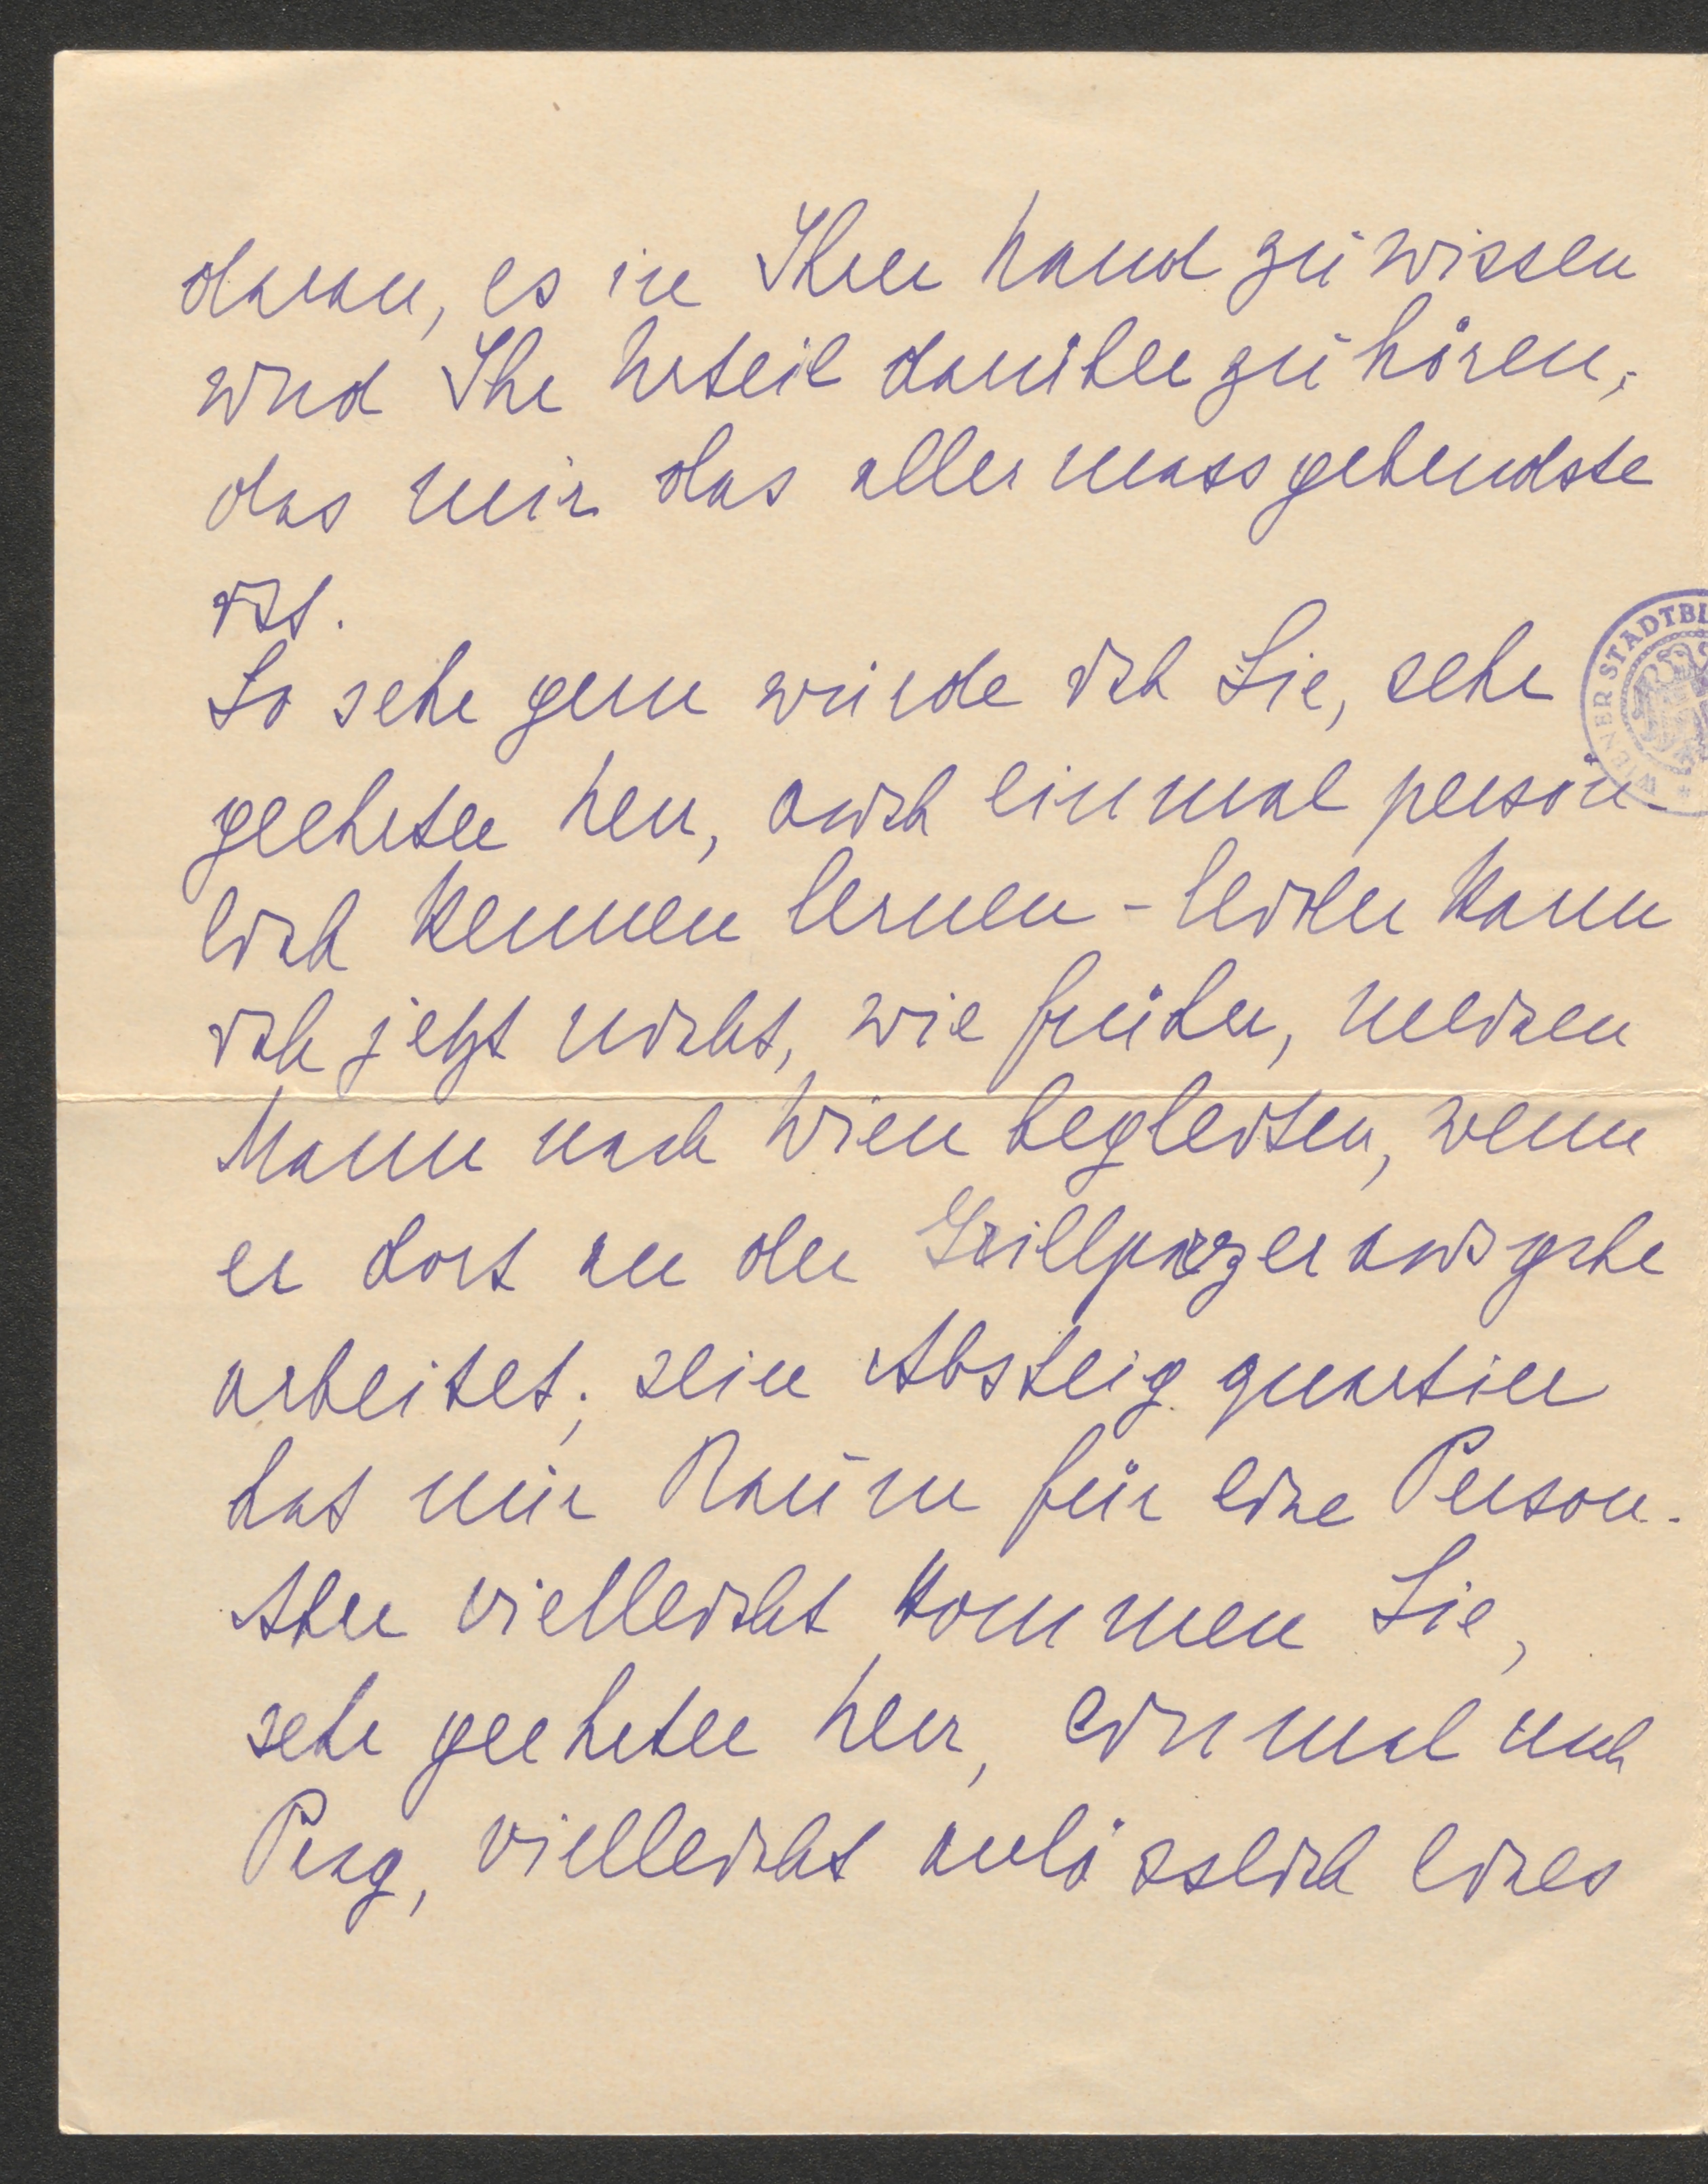 daran, es in Ihrer Hand zu wissen
und Ihr Urteil darüber zu hören,
das mir das aller massgebendste
ist.
So sehr gern würde ich Sie, sehr
geehrter Herr, auch einmal persön-
lich kennen lernen - leider kann
ich jetzt nicht, wie früher, meinen
Mann nach Wien begleiten, wenn
er dort an der Grillparzerausgabe
arbeitet; sein Absteigquartier
hat nur Raum für eine Person.
Aber vielleicht kommen Sie,
sehr geehrter Herr, einmal nach
Prag, vielleicht anlässlich eines
WIENER STADTBI